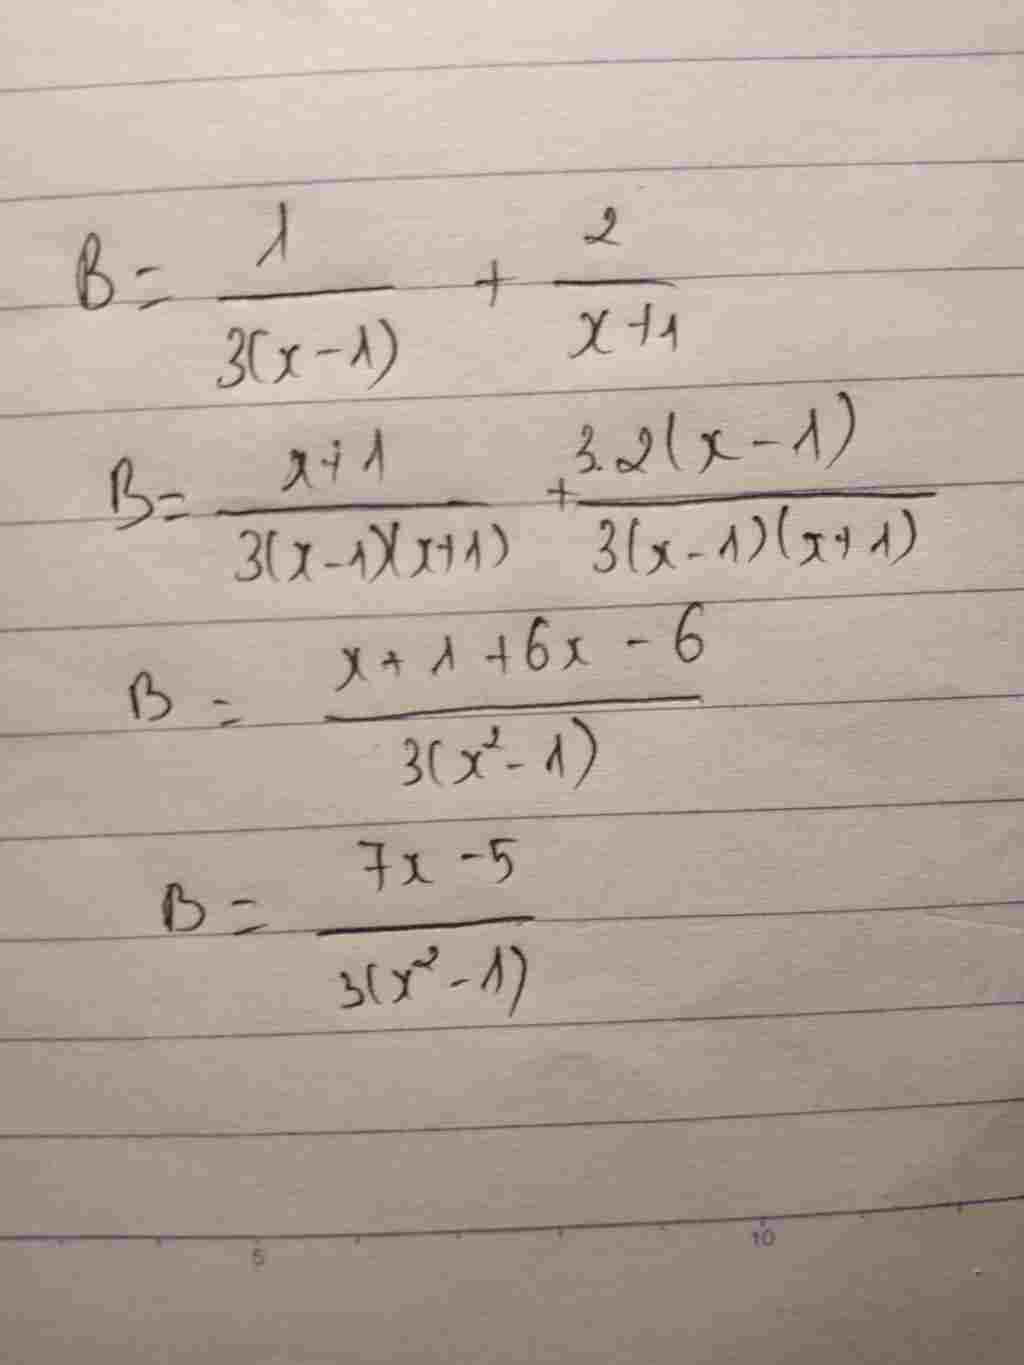 B = \frac{1}{3(x-1)} + \frac{2}{x+1}
B = \frac{x+1}{3(x-1)(x+1)} + \frac{3.2(x-1)}{3(x-1)(x+1)}
B = \frac{x+1+6x-6}{3(x^2-1)}
B = \frac{7x-5}{3(x^2-1)}
5 10